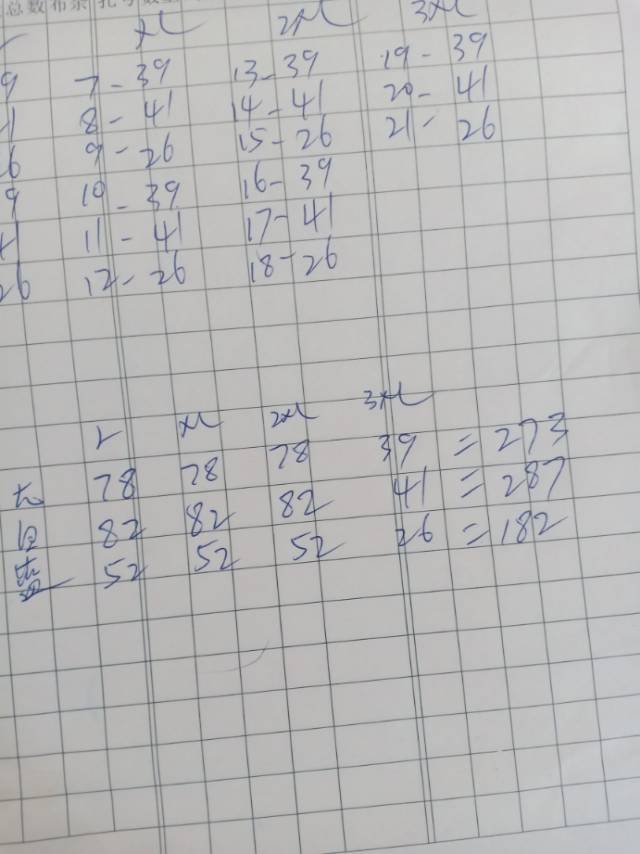 总数 布条 扎号 数量
L XL 2XL 3XL
9 7-39 13-39 19-39
41 8-41 14-41 20-41
26 9-26 15-26 21-26
9 10-39 16-39
41 11-41 17-41
26 12-26 18-26
L XL 2XL 3XL
78 78 78 39 =273
白 82 82 82 41 =287
52 52 52 26 =182